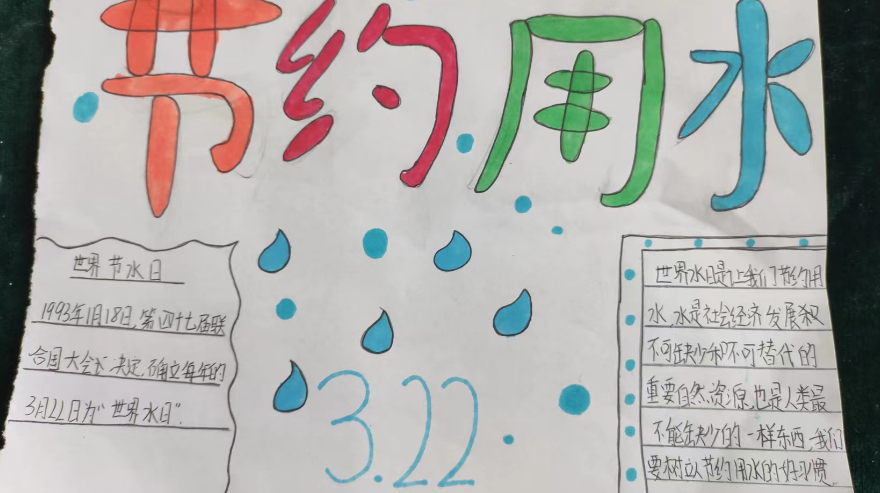 节约用水
世界节水日
1993年1月18日,第四十七届联
合国大会决定,确立每年的
3月22日为“世界水日”.
3.22
世界水日是让我们节约用
水,水是社会经济发展
不可缺少和不可替代的
重要自然资源,也是人类最
不能缺少的一样东西,我们
要树立节约用水的好习惯.